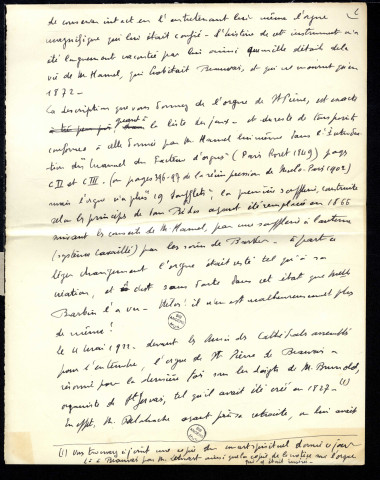 6
de conserver intact en l'entretenant lui même l'orgue
magnifique qui lui était confié - L'histoire de cet instrument m'a
été longuement racontée par lui ainsi que mille détails de la
vie de M. Hamel, qui habitait Beauvais, et qui ne mourut qu'en
1872 -
La description que vous donnez de l'orgue de St Pierre, est exacte
quant à la liste des jeux - et du reste de tous points
conforme à celle donnée par M. Hamel lui même dans l'Introduc
tion du "Manuel du Facteur d'orgues" (Paris Roret 1849) pages
CII et CIII - (ou pages 396-97 de la réimpression de Mulo - Paris 1902)
mais l'orgue n'a plus "19 soufflets", la première soufflerie, construite
selon les principes de Dom Bédos ayant été remplacée en 1866
suivant les conseils de M. Hamel, par une soufflerie à lanterne
(système Cavaillé) par les soins de Barker - à part ce
léger changement l'orgue était resté tel qu'à sa
création, et c'est sans doute dans cet état que
l'a vu - Hélas! il n'en est malheureusement plus
de même!
Le 4 Mai 1922 - devant les Amis des Cathédrales assemblés
pour l'entendre, l'orgue de St Pierre de Beauvais a
résonné pour la dernière fois sous les doigts de M. Brunold,
organiste de St Gervais, tel qu'il avait été créé en 1827 - (1)
En effet, M. Delahache ayant pris sa retraite, on lui avait
(1) Vous trouverez ci joint une copie du concert spirituel donné ce jour
là à Beauvais par M. ainsi que la copie de la notice sur l'orgue